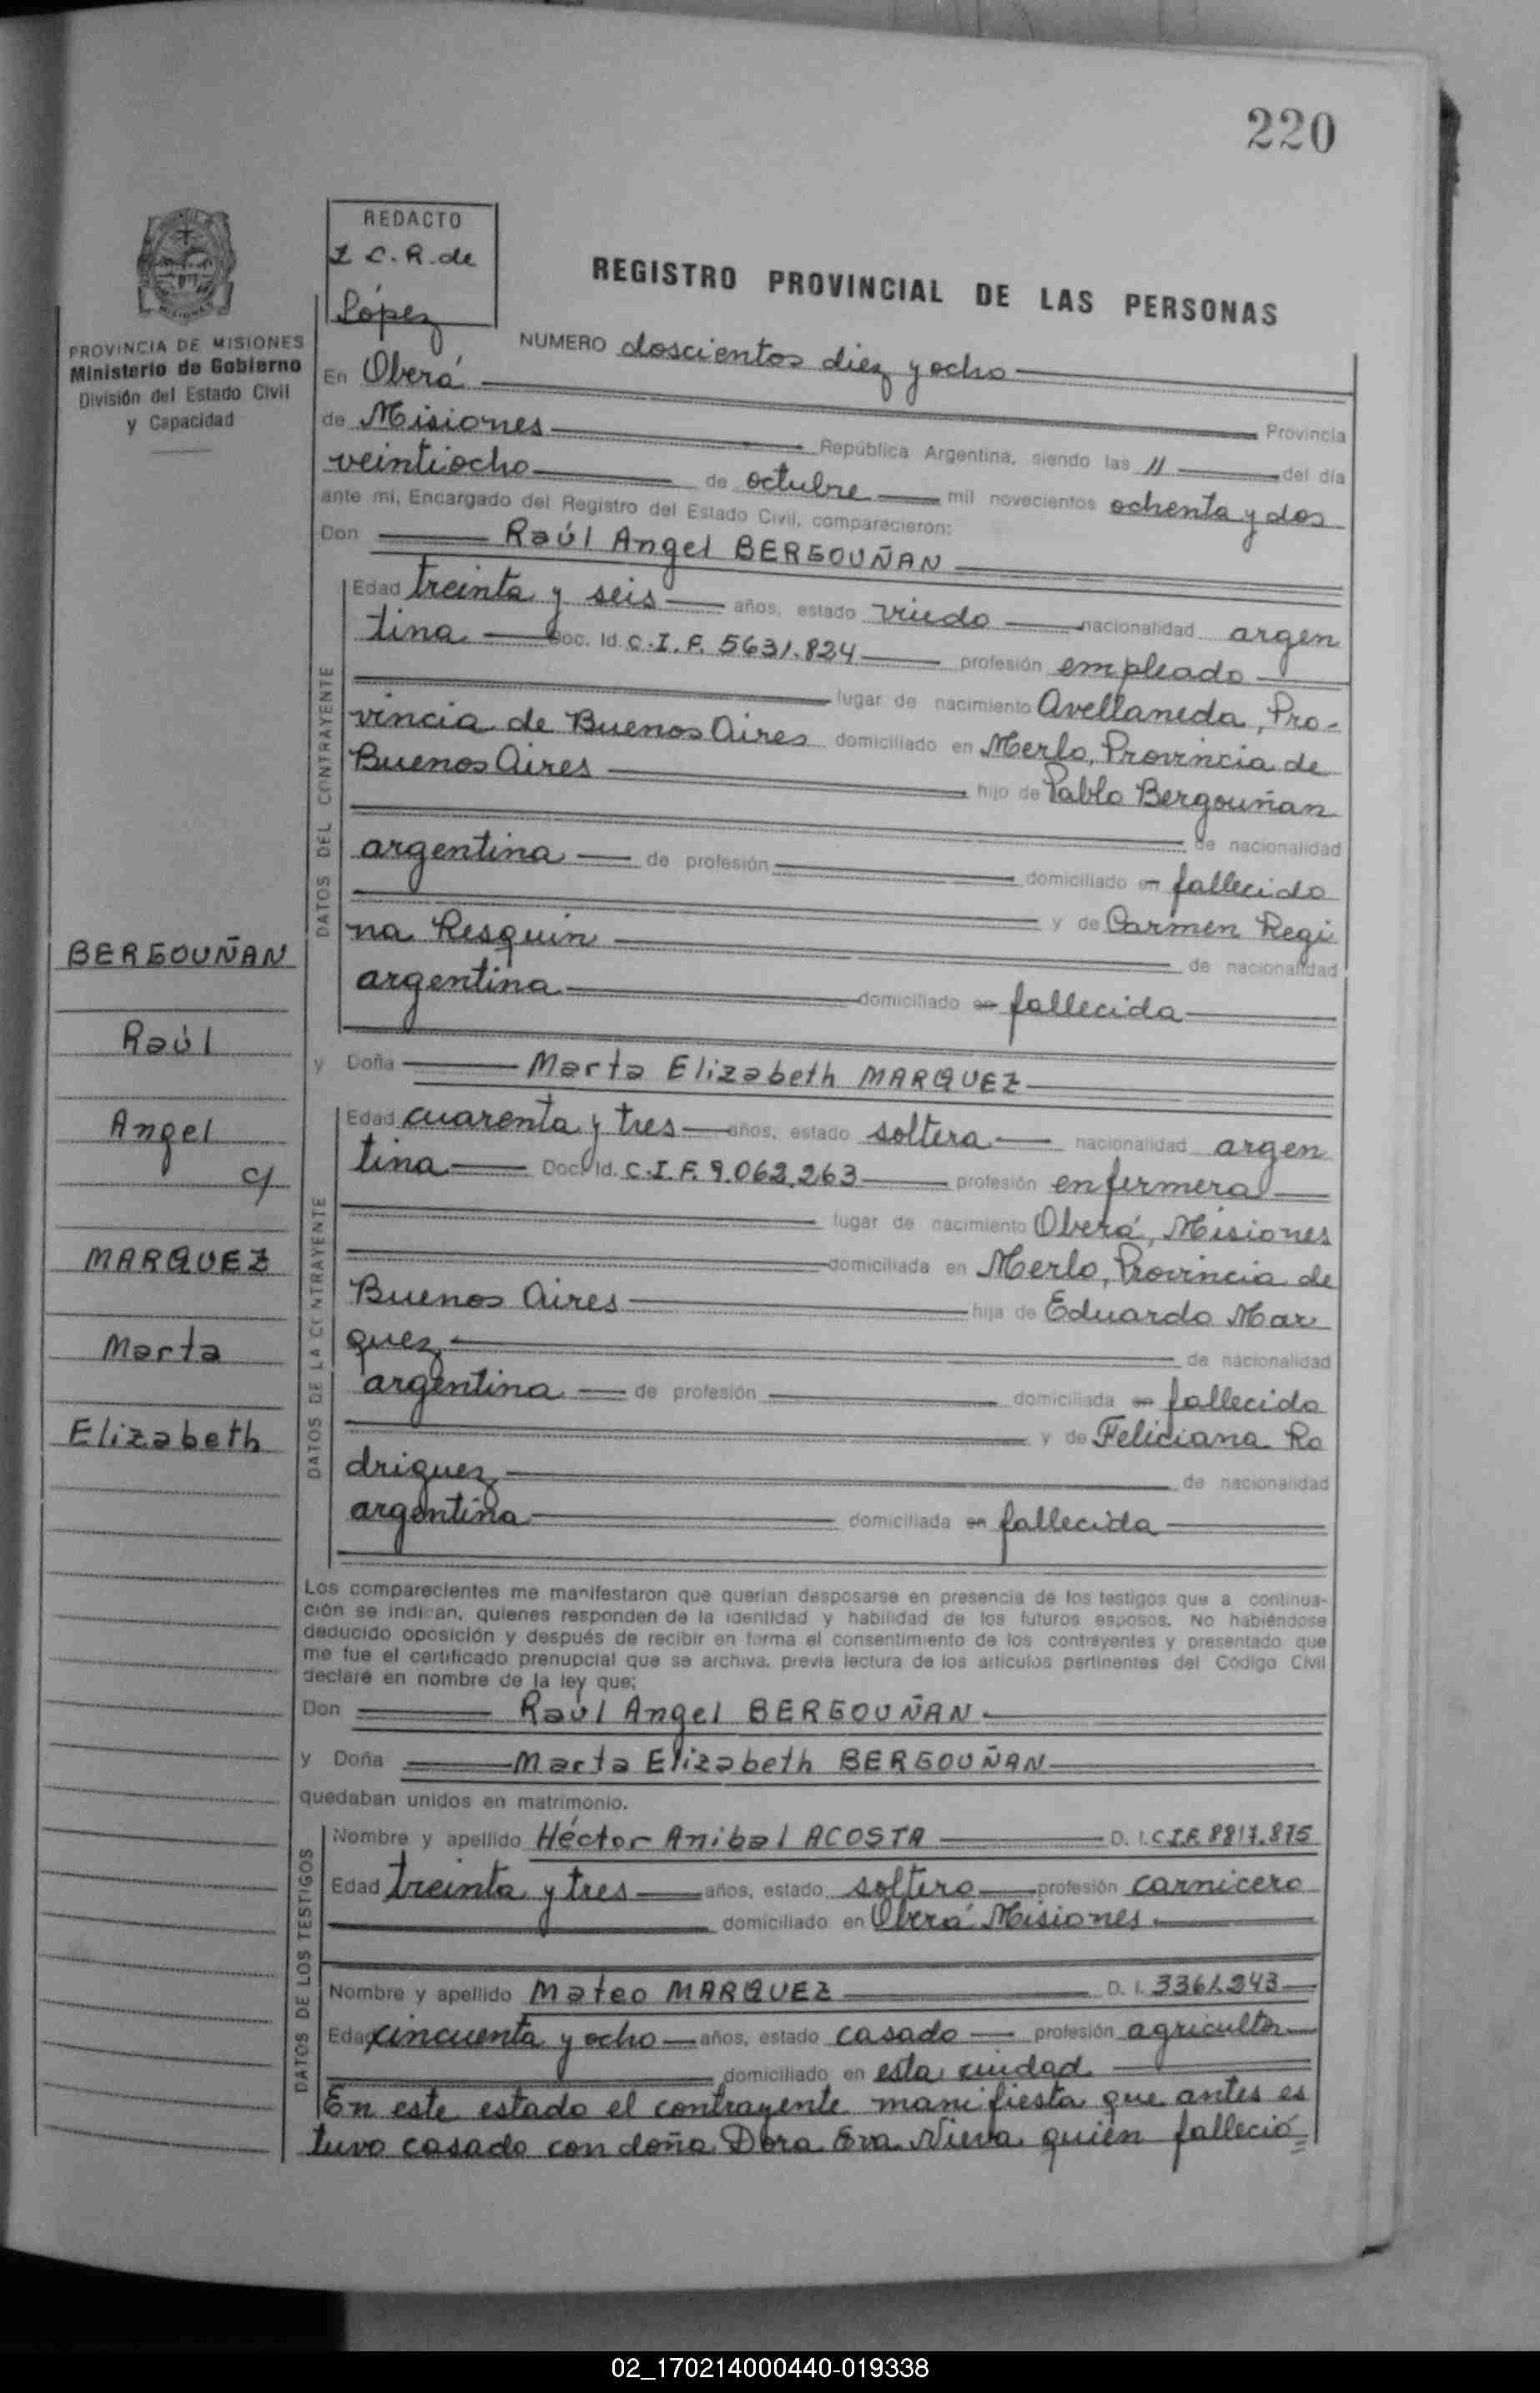 220
REDACTO
I C. R. de
López
REGISTRO PROVINCIAL DE LAS PERSONAS
PROVINCIA DE MISIONES
Ministerio de Gobierno
División del Estado Civil
y Capacidad
NUMERO doscientos diez y ocho
En Oberá
Provincia
de Misiones República Argentina, siendo las 11 del día
veintiocho de octubre mil novecientos ochenta y dos
ante mí, Encargado del Registro del Estado Civil, comparecieron:
Don Raúl Angel BERGOUÑAN
DATOS DEL CONTRAYENTE
Edad treinta y seis años, estado viudo nacionalidad argen
tina Doc. Id. C.I.F. 5631.824 profesión empleado
lugar de nacimiento Avellaneda, Pro-
vincia de Buenos Aires domiciliado en Merlo, Provincia de
Buenos Aires hijo de Pablo Bergouñan
de nacionalidad
argentina de profesión domiciliado en fallecido
y de Carmen Regi
na Resquin de nacionalidad
argentina domiciliado en fallecida
y Doña Marta Elizabeth MARQUEZ
DATOS DE LA CONTRAYENTE
Edad cuarenta y tres años, estado soltera nacionalidad argen
tina Doc. Id. C.I.F. 9.062.263 profesión enfermera
lugar de nacimiento Oberá, Misiones
domiciliada en Merlo, Provincia de
Buenos Aires hija de Eduardo Mar
quez de nacionalidad
argentina de profesión domiciliada en fallecido
y de Feliciana Ro
driguez de nacionalidad
argentina domiciliada en fallecida
BERGOUÑAN
Raúl
Angel
c/
MARQUEZ
Marta
Elizabeth
Los comparecientes me manifestaron que querían desposarse en presencia de los testigos que a continua-
ción se indican, quienes responden de la identidad y habilidad de los futuros esposos. No habiéndose
deducido oposición y después de recibir en forma el consentimiento de los contrayentes y presentado que
me fue el certificado prenupcial que se archiva, previa lectura de los artículos pertinentes del Código Civil
declaré en nombre de la ley que;
Don Raúl Angel BERGOUÑAN
y Doña Marta Elizabeth BERGOUÑAN
quedaban unidos en matrimonio.
DATOS DE LOS TESTIGOS
Nombre y apellido Héctor Anibal ACOSTA D. I. C.I.F. 8817.875
Edad treinta y tres años, estado soltero profesión carnicero
domiciliado en Oberá Misiones
Nombre y apellido Mateo MARQUEZ D. I. 3361.243
Edad cincuenta y ocho años, estado casado profesión agricultor
domiciliado en esta ciudad
En este estado el contrayente manifiesta que antes es
tuvo casado con doña Dora Eva Nieva quién falleció=
02_170214000440-019338